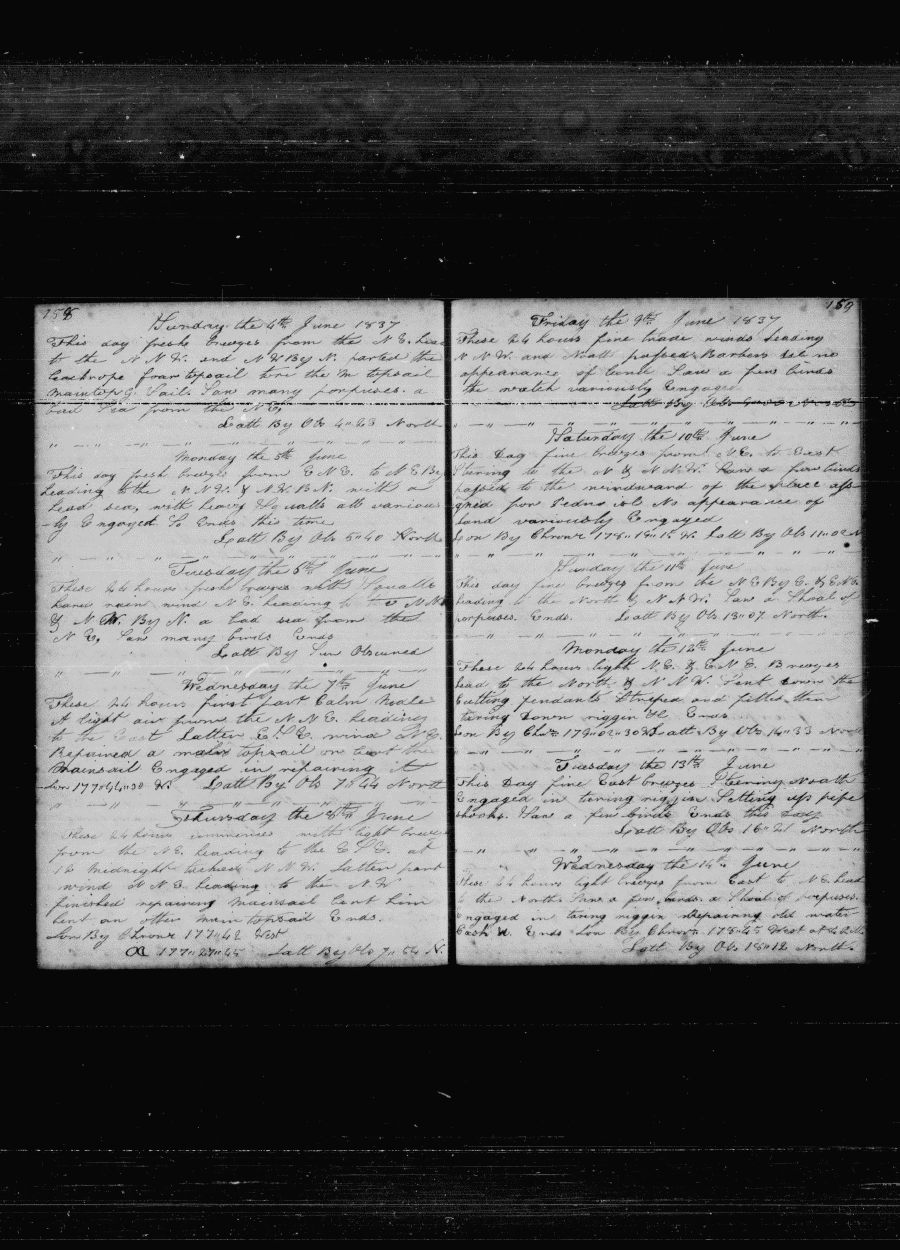 158
Sunday the 4th June 1837
This day fresh breezes from the N E. head
to the N N W. and N W By N. parted the
leachrope four topsail tore the M topsail
Maintop G. Sail. Saw many porpuses. a
bad Sea from the N E,
Latt By Obs 4"23 North
Monday the 5th June
This day fresh breezes from E N E. to N E By
heading to the N N W. & N W. B N. with a
head sea, with heavy Squalls all various
-ly Engaged So Ends this time
Latt By Obs 5"40 North
Tuesday the 6th June
These 24 hours fresh breezes with Squalls
rain wind N E. heading to the N N W
& N W. By N. a bad sea from the
N E, Saw many birds Ends
Latt By Sun Obscured
Wednesday the 7th June
These 24 hours first part Calm
A light air from the N N E. heading
to the East Latter E. S. E. wind N E.
Repaired a main topsail on bent the
Mainsail Engaged in repairing it
Lon 177"44"30 W. Latt By Obs 7"44 North
Thursday the 8th June
These 24 hours commences with light breeze
from the N E. leading to the E S E. at
12 Midnight tacked N N W. Latter part
wind N N E. leading to the N W
finished repairing Mainsail bent him
bent an other main topsail Ends.
Lon By Chronr 177"42 West
177"27"45 Latt By Obs 7"54 N.
159
Friday the 9th June 1837
These 24 hours fine trade winds leading
N N W. and North passed Barbers Ile no
appearance of land Saw a few birds
the watch variously Engaged
Latt By Obs
Saturday the 10th June
This Day fine breezes from N E. to East
Stering to the N & N N W. Saw a few birds
passed to the windward of the place ass
gned for Pedro isle No appearance of
land variously Engaged
Lon By Chronr 178"19"15 W. Latt By Obs 11"02 N
Sunday the 11th June
This day fine breezes from the N E By E. & E N E.
heading to the North & N N W. Saw a Shoal of
porpuses. Ends. Latt By Obs 13"07 North.
Monday the 12th June
These 24 hours light N E. & E N E. Breezes
head to the North & N N W. Sent down the
Cutting pendants Striped and fitted them
taring down riggin &c Ends
Lon By Chr 178"02"30 Latt By Obs 14"33 North
Tuesday the 13th June
This Day fine East breezes Stering North
Engaged in taring riggin Setting up pipe
shooks. Saw a few birds Ends this day
Latt By Obs 16"21 North
Wednesday the 14th June
These 24 hours light breezes from East to N E. head
to the North. Saw a few birds. a Shoal of porpuses.
Engaged in taring riggin Repairing old water
Cask &. Ends Lon By Chronr 178"45 West at 4 P.M.
Latt By Obs 18"12 North.